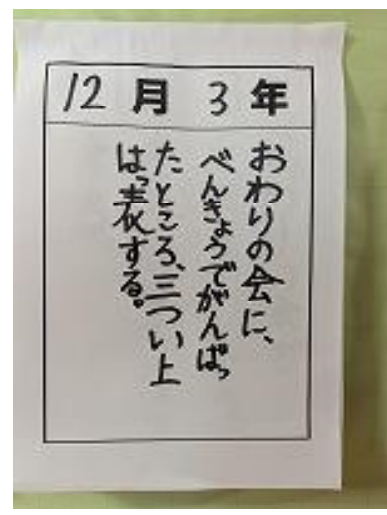 12月 3年
おわりの会に、
べんきょうでがんばっ
たところ、三つい上
はっ表する。